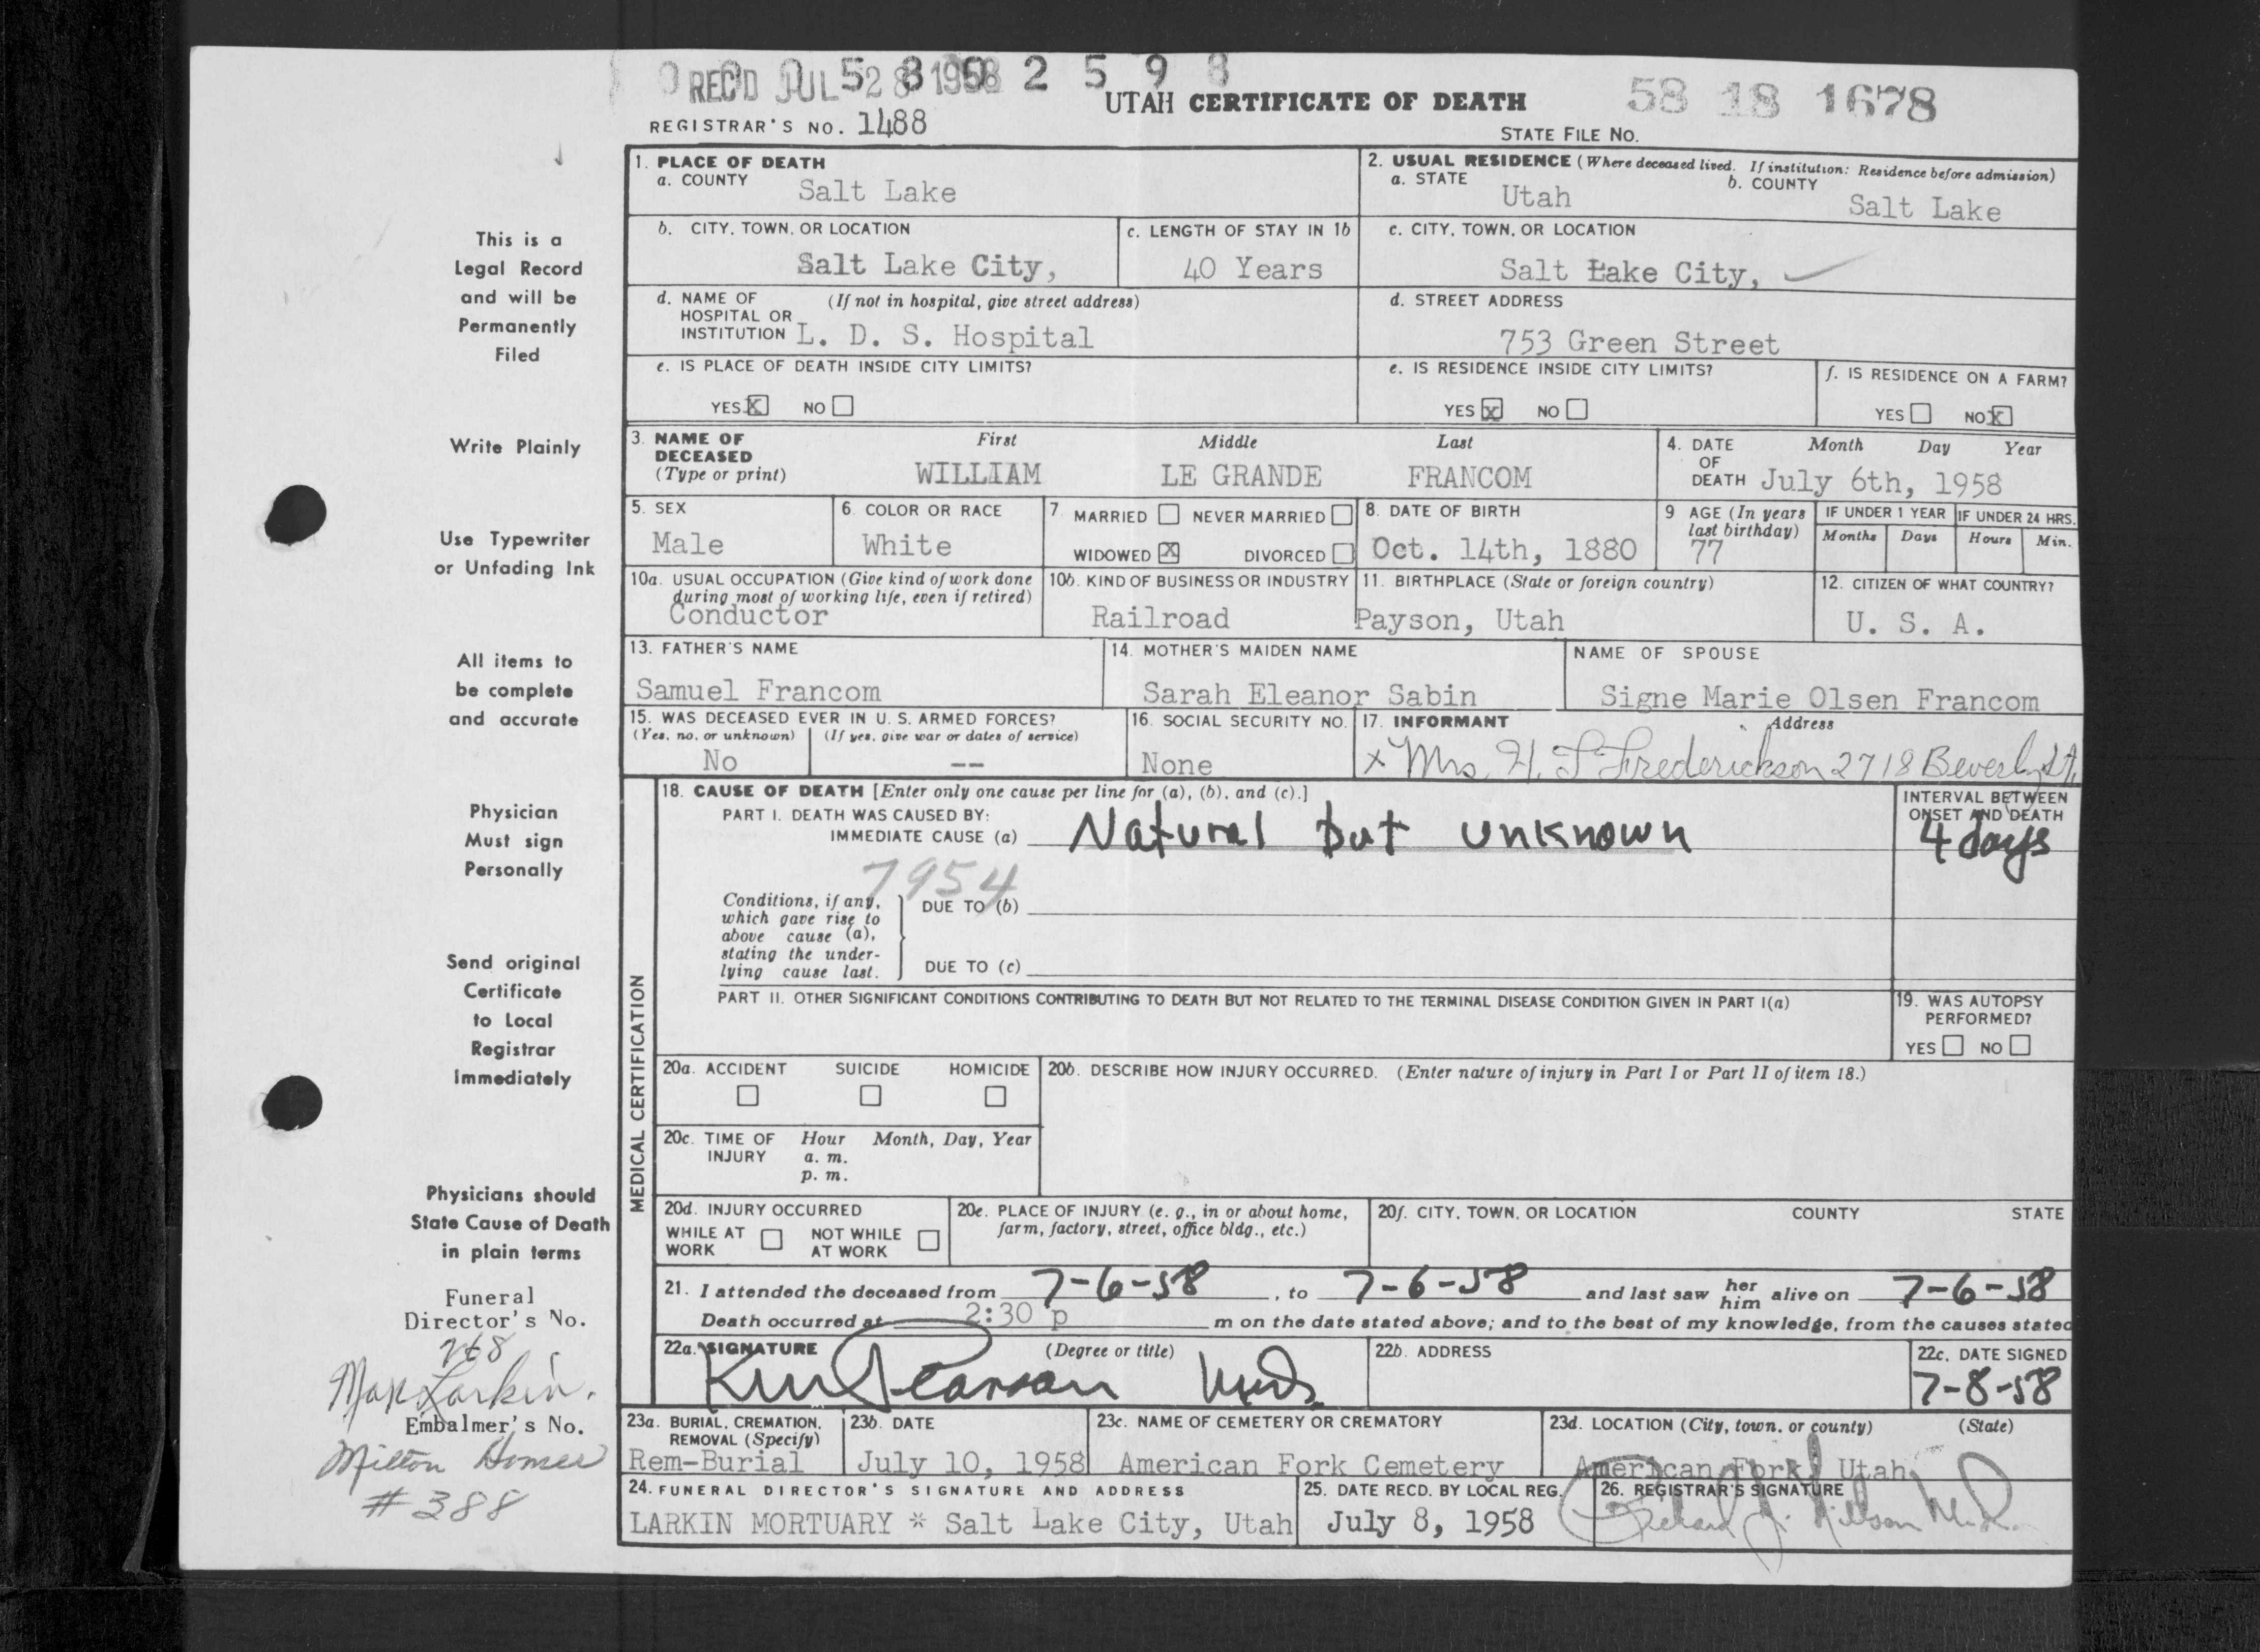 REC'D JUL 28 1958
5 8 0 2 5 9 8
UTAH CERTIFICATE OF DEATH
58 18 1678
REGISTRAR'S NO. 1488
STATE FILE NO.
1. PLACE OF DEATH
a. COUNTY
Salt Lake
2. USUAL RESIDENCE (Where deceased lived. If institution: Residence before admission)
a. STATE
Utah
b. COUNTY
Salt Lake
b. CITY, TOWN, OR LOCATION
Salt Lake City,
c. LENGTH OF STAY IN 1b
40 Years
c. CITY, TOWN, OR LOCATION
Salt Lake City,
d. NAME OF HOSPITAL OR INSTITUTION
(If not in hospital, give street address)
L. D. S. Hospital
d. STREET ADDRESS
753 Green Street
e. IS PLACE OF DEATH INSIDE CITY LIMITS?
YES X NO
e. IS RESIDENCE INSIDE CITY LIMITS?
YES X NO
f. IS RESIDENCE ON A FARM?
YES NO X
3. NAME OF DECEASED
(Type or print)
First Middle Last
WILLIAM LE GRANDE FRANCOM
4. DATE OF DEATH
Month Day Year
July 6th, 1958
5. SEX
Male
6. COLOR OR RACE
White
7. MARRIED NEVER MARRIED
WIDOWED X DIVORCED
8. DATE OF BIRTH
Oct. 14th, 1880
9 AGE (In years last birthday)
77
IF UNDER 1 YEAR
Months Days
IF UNDER 24 HRS.
Hours Min.
10a. USUAL OCCUPATION (Give kind of work done during most of working life, even if retired)
Conductor
10b. KIND OF BUSINESS OR INDUSTRY
Railroad
11. BIRTHPLACE (State or foreign country)
Payson, Utah
12. CITIZEN OF WHAT COUNTRY?
U. S. A.
13. FATHER'S NAME
Samuel Francom
14. MOTHER'S MAIDEN NAME
Sarah Eleanor Sabin
NAME OF SPOUSE
Signe Marie Olsen Francom
15. WAS DECEASED EVER IN U. S. ARMED FORCES?
(Yes, no, or unknown) (If yes, give war or dates of service)
No --
16. SOCIAL SECURITY NO.
None
17. INFORMANT Address
x Mrs. H. Frederickson 2718 Beverly St.
18. CAUSE OF DEATH [Enter only one cause per line for (a), (b), and (c).]
PART I. DEATH WAS CAUSED BY:
IMMEDIATE CAUSE (a) Natural but unknown
INTERVAL BETWEEN ONSET AND DEATH
4 days
7954
Conditions, if any, which gave rise to above cause (a), stating the underlying cause last.
DUE TO (b)
DUE TO (c)
PART II. OTHER SIGNIFICANT CONDITIONS CONTRIBUTING TO DEATH BUT NOT RELATED TO THE TERMINAL DISEASE CONDITION GIVEN IN PART I(a)
19. WAS AUTOPSY PERFORMED?
YES NO
MEDICAL CERTIFICATION
20a. ACCIDENT SUICIDE HOMICIDE
20b. DESCRIBE HOW INJURY OCCURRED. (Enter nature of injury in Part I or Part II of item 18.)
20c. TIME OF INJURY
Hour Month, Day, Year
a. m.
p. m.
20d. INJURY OCCURRED
WHILE AT WORK NOT WHILE AT WORK
20e. PLACE OF INJURY (e. g., in or about home, farm, factory, street, office bldg., etc.)
20f. CITY, TOWN, OR LOCATION COUNTY STATE
21. I attended the deceased from 7-6-58, to 7-6-58 and last saw her him alive on 7-6-58
Death occurred at 2:30 p m on the date stated above; and to the best of my knowledge, from the causes stated
22a. SIGNATURE (Degree or title)
Pearson M.D.
22b. ADDRESS
22c. DATE SIGNED
7-8-58
23a. BURIAL, CREMATION, REMOVAL (Specify)
Rem-Burial
23b. DATE
July 10, 1958
23c. NAME OF CEMETERY OR CREMATORY
American Fork Cemetery
23d. LOCATION (City, town, or county) (State)
American Fork, Utah
24. FUNERAL DIRECTOR'S SIGNATURE AND ADDRESS
LARKIN MORTUARY * Salt Lake City, Utah
25. DATE RECD. BY LOCAL REG.
July 8, 1958
26. REGISTRAR'S SIGNATURE
Richard
This is a
Legal Record
and will be
Permanently
Filed
Write Plainly
Use Typewriter
or Unfading Ink
All items to
be complete
and accurate
Physician
Must sign
Personally
Send original
Certificate
to Local
Registrar
immediately
Physicians should
State Cause of Death
in plain terms
Funeral
Director's No.
Max Larkin.
Embalmer's No.
Milton
#388